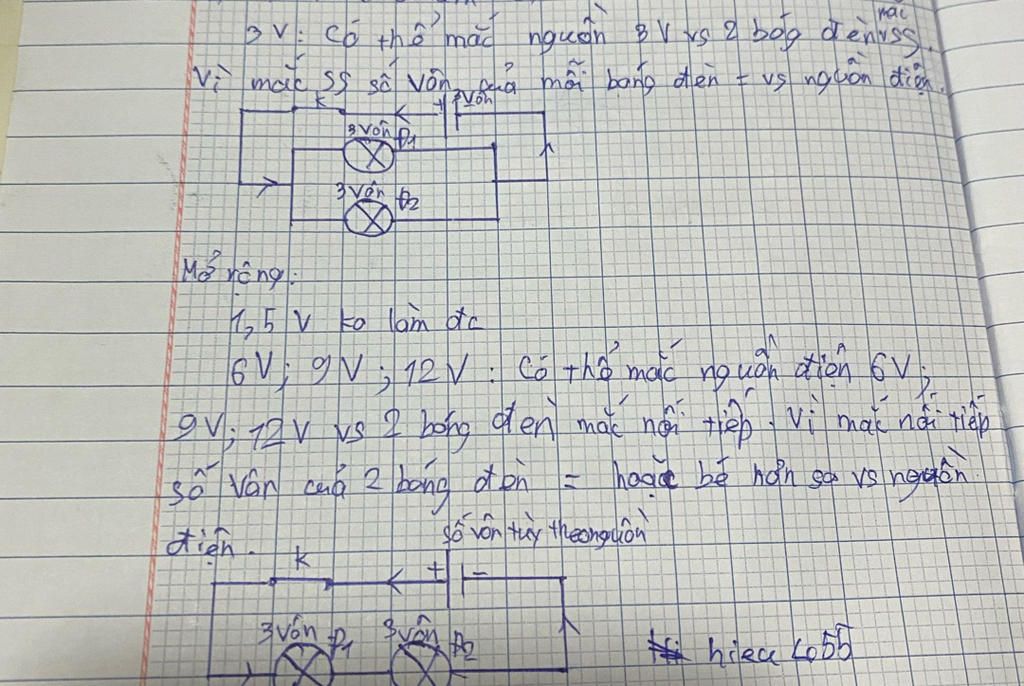 3V: Có thể mắc nguồn 3V vs 2 bóg đèn mắc vss.
Vì mắc ss số vôn của mỗi bóng đèn = vs nguồn điện.
K + 3vôn
3vôn Đ1
3vôn Đ2
Mở rộng:
1,5 V ko làm đc
6V; 9V; 12V: Có thể mắc nguồn điện 6V;
9V; 12V vs 2 bóng đèn mắc nối tiếp. Vì mắc nối tiếp
số vôn của 2 bóng đèn = hoặc bé hơn so vs nguồn
điện.
số vôn tùy theo nguồn
K + -
3vôn Đ1 3vôn Đ2
hieu